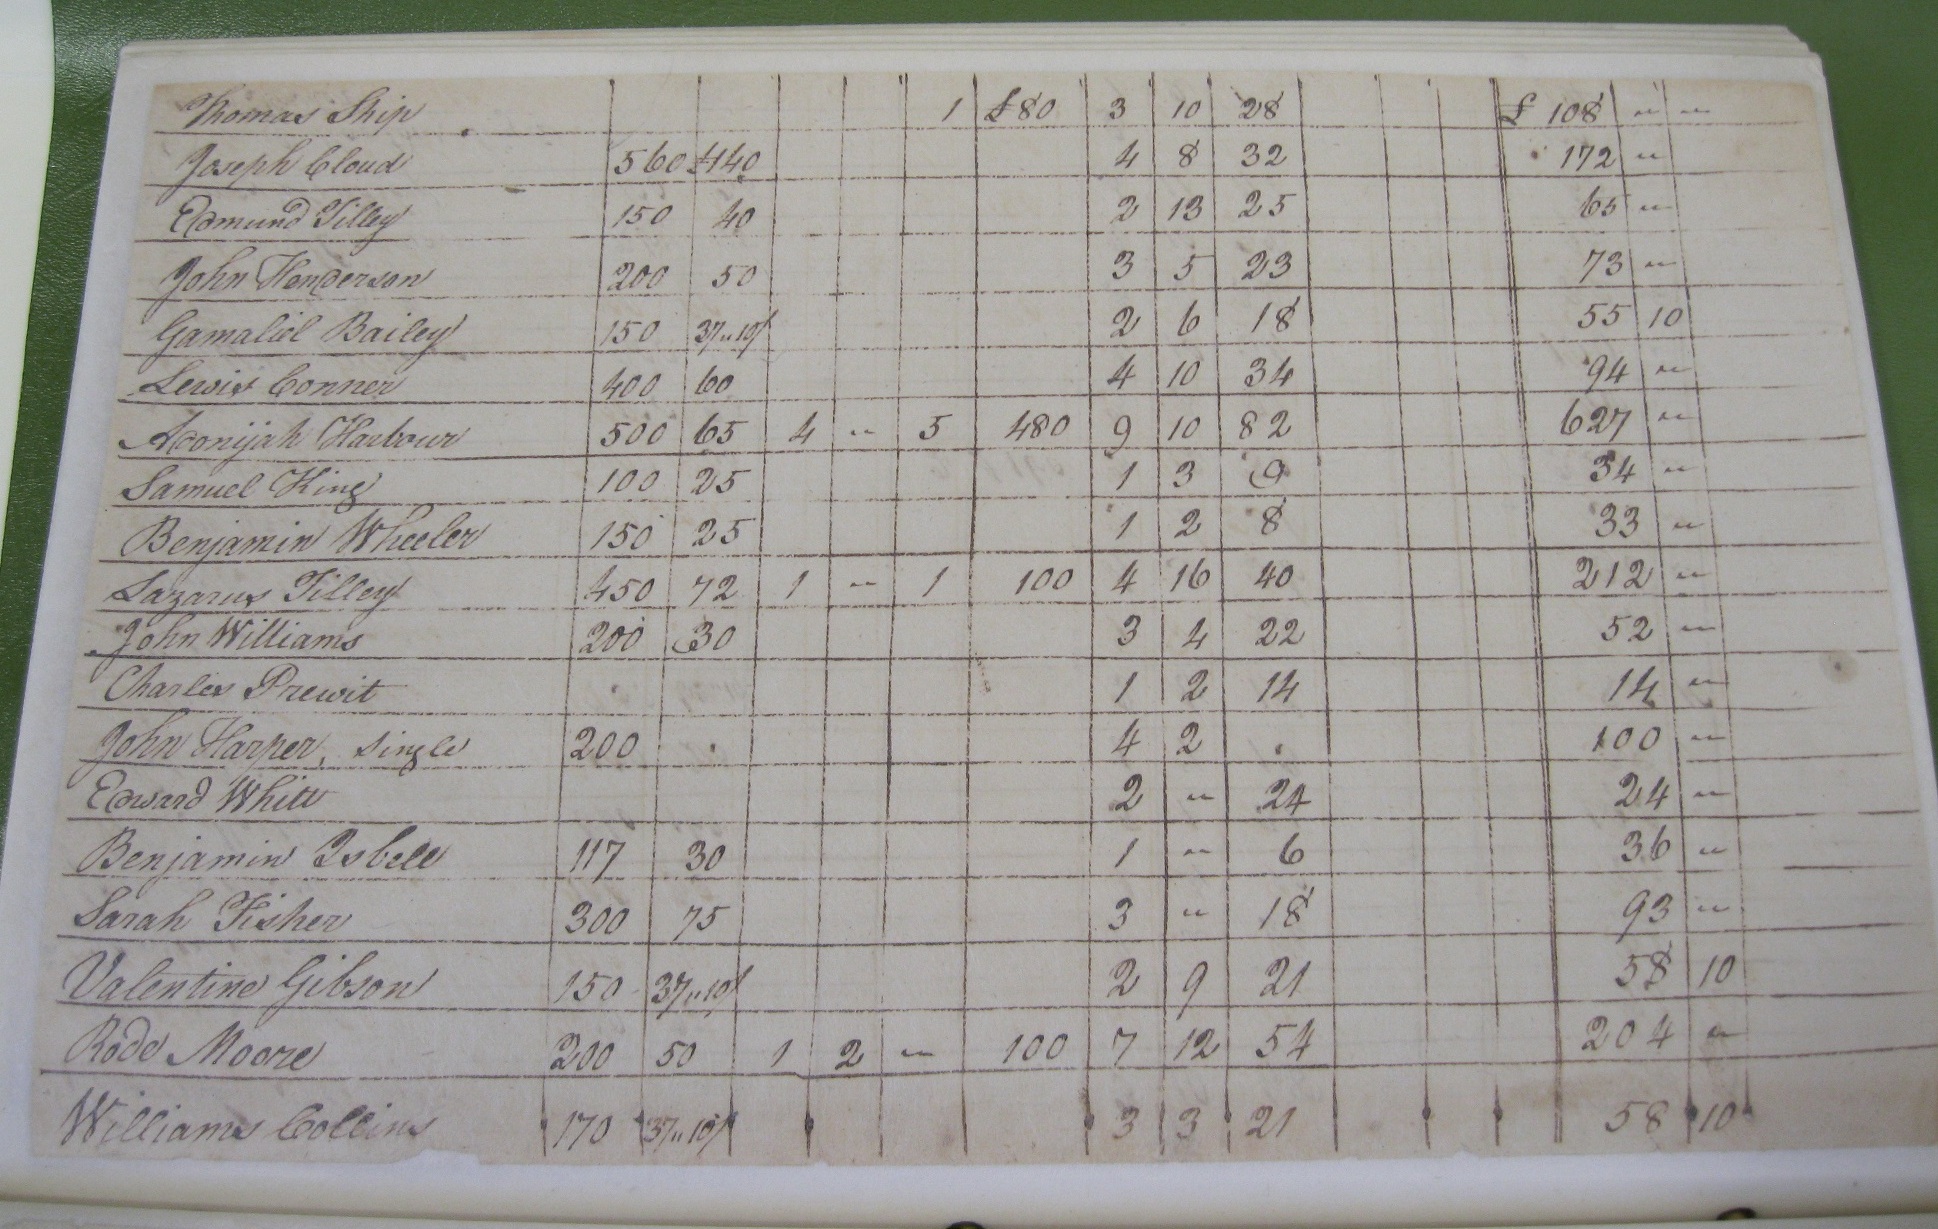 Thomas Ship 1 £80 3 10 28 £ 108 " "
Joseph Cloud 560 £140 4 8 32 172 "
Edmund Tilley 150 40 2 13 25 65 "
John Henderson 200 50 3 5 23 73 "
Gamaliel Bailey 150 37"10/ 2 6 18 55 10
Lewis Conner 400 60 4 10 34 94 "
Adonijah Harbour 500 65 4 " 5 480 9 10 82 627 "
Samuel King 100 25 1 3 9 34 "
Benjamin Wheeler 150 25 1 2 8 33 "
Lazarus Tilley 450 72 1 " 1 100 4 16 40 212 "
John Williams 200 30 3 4 22 52 "
Charles Prewit 1 2 14 14 "
John Harper, single 200 . 4 2 . 100 "
Edward White 2 " 24 24 "
Benjamin Isbell 117 30 1 " 6 36 "
Sarah Fisher 300 75 3 " 18 93 "
Valentine Gibson 150 37"10/ 2 9 21 58 10
Rodd Moore 200 50 1 2 " 100 7 12 54 204 "
Williams Collins 170 37"10/ 3 3 21 58 10